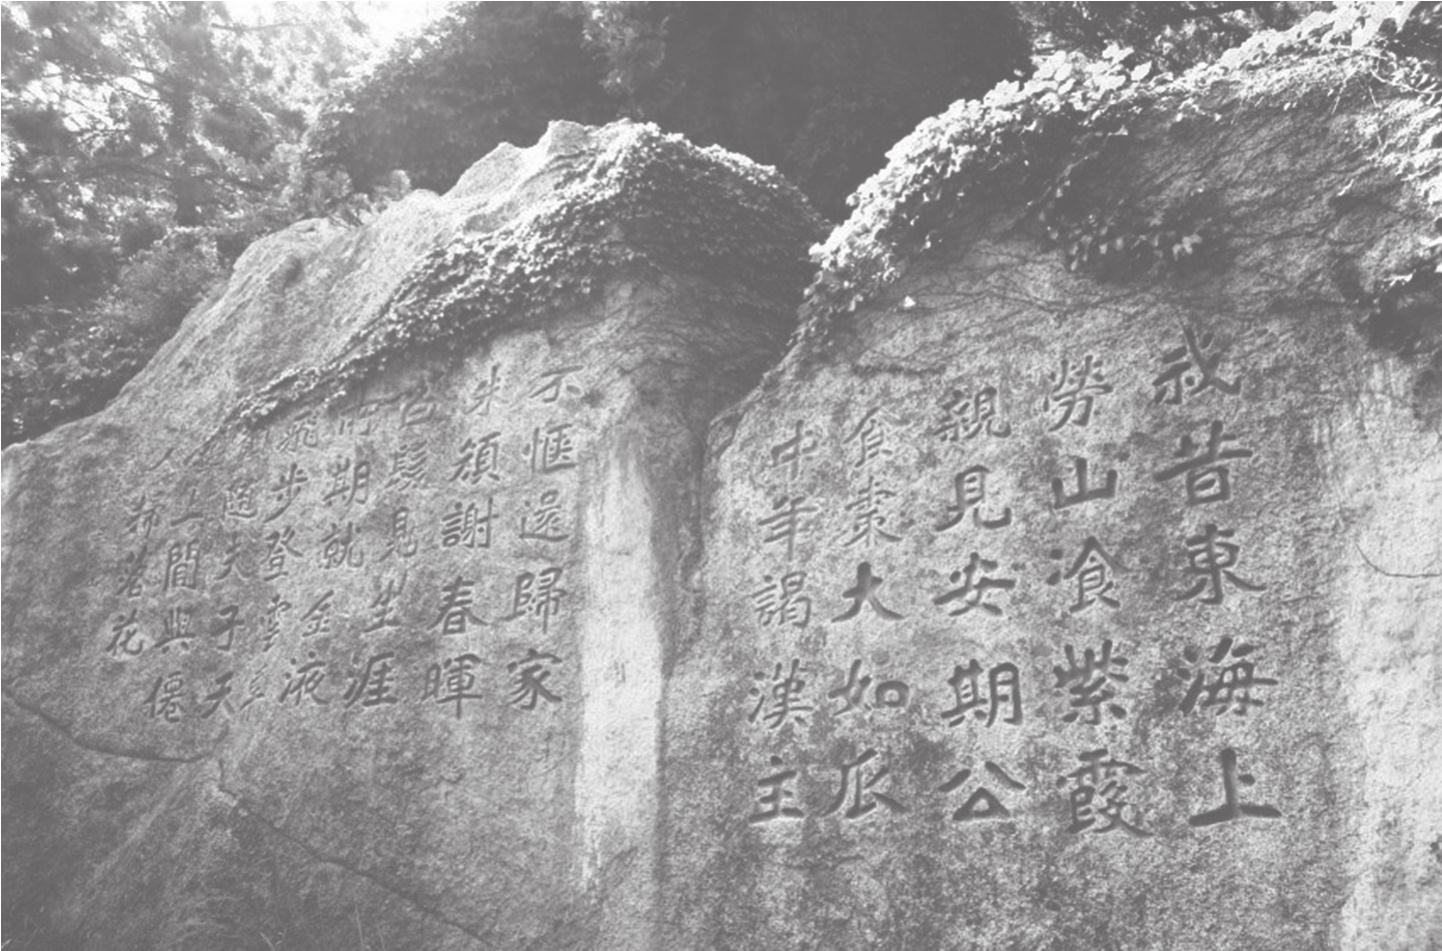 我昔東海上
勞山湌紫霞
親見安期公
食棗大如瓜
中年謁漢主
不愜還歸家
朱顔謝春暉
白髮見生涯
所期就金液
飛步登雲車
隨夫子天
上間與僊
人掃落花